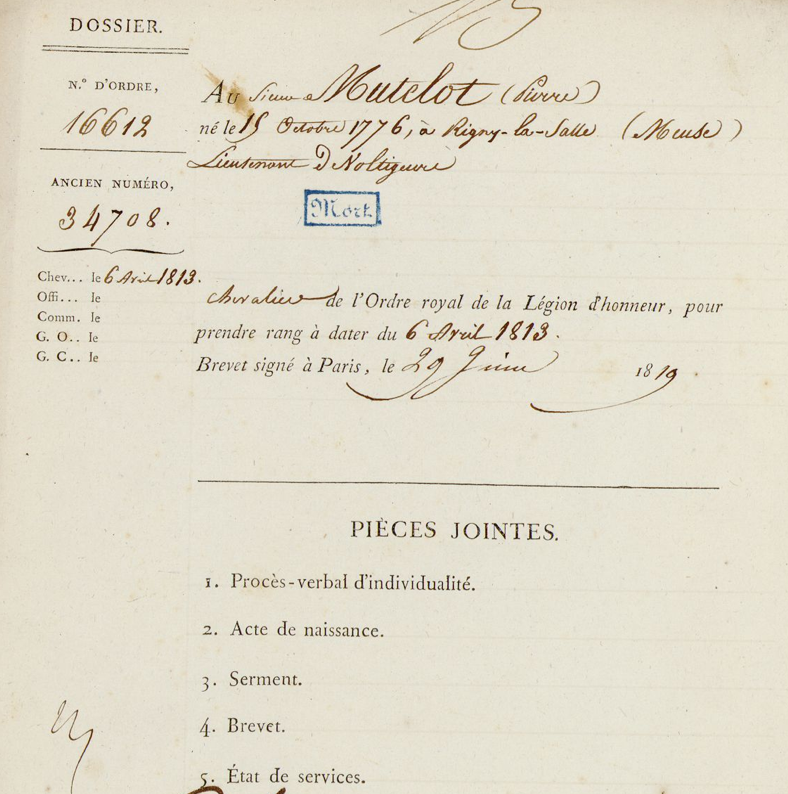 DOSSIER.
N.° D'ORDRE,
16612
ANCIEN NUMÉRO,
34708.
Chev... le 6 Avril 1813.
Offi... le
Comm. le
G. O.. le
G. C.. le
Au Sieur Matelot (Pierre)
né le 15 Octobre 1776, à Rigny-la-Salle (Meuse)
Lieutenant De Voltigeurs
Mort
Chevalier de l'Ordre royal de la Légion d'honneur, pour
prendre rang à dater du 6 Avril 1813.
Brevet signé à Paris, le 29 Juin 1819
PIÈCES JOINTES.
1. Procès-verbal d'individualité.
2. Acte de naissance.
3. Serment.
4. Brevet.
5. État de services.